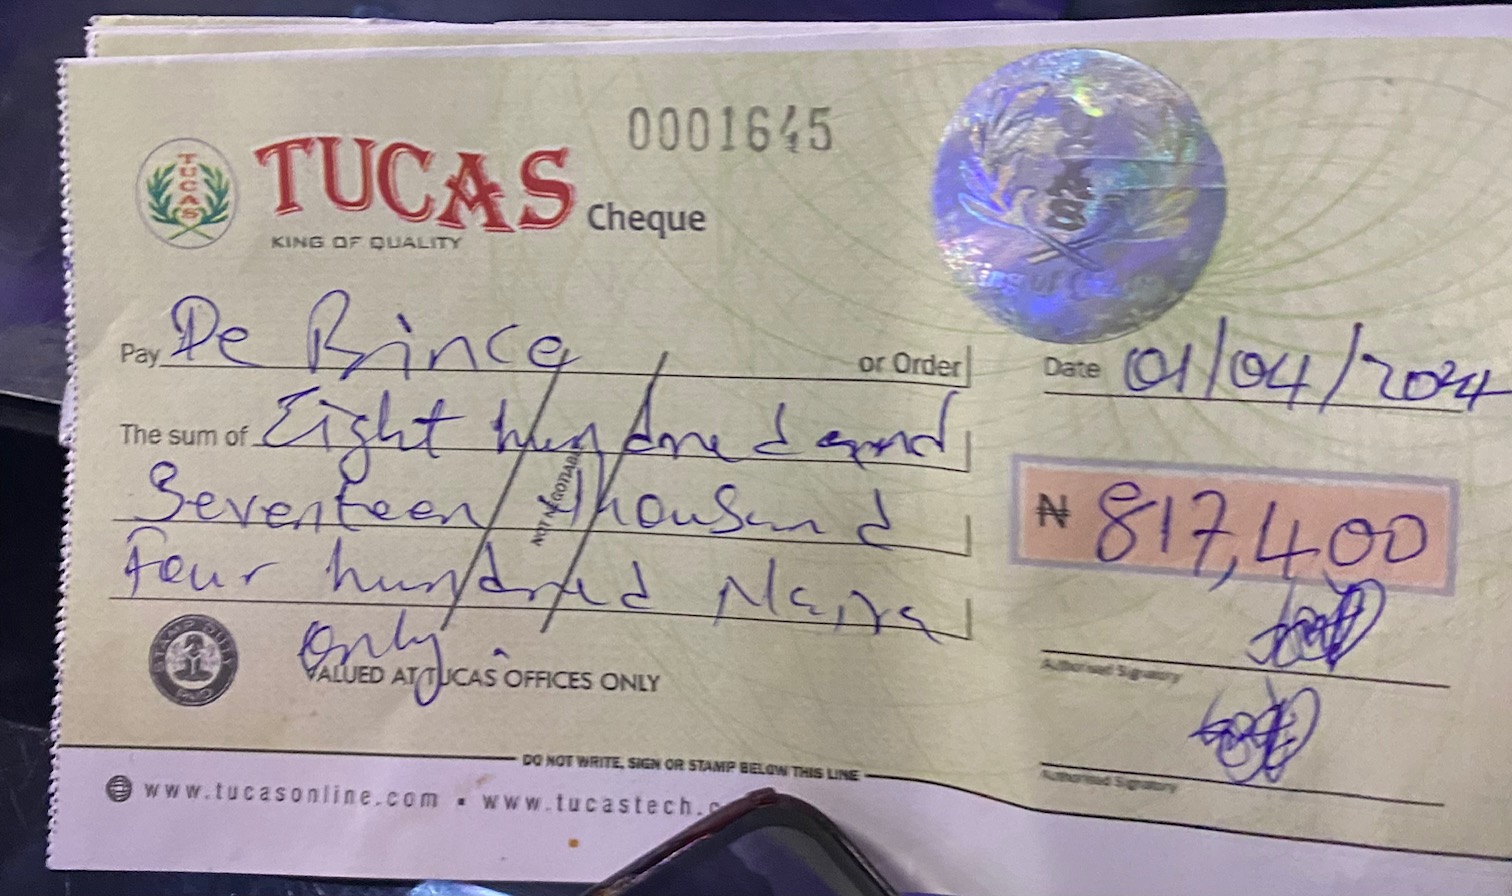 0001645
TUCAS
TUCAS Cheque
KING OF QUALITY
Pay De Prince or Order
Date 01/04/2024
The sum of Eight hundred and
Seventeen thousand
Four hundred Naira
only.
NOT NEGOTIABLE
₦ 817,400
Authorised Signatory
Authorised Signatory
STAMP DUTY
PAID
VALUED AT TUCAS OFFICES ONLY
DO NOT WRITE, SIGN OR STAMP BELOW THIS LINE
www.tucasonline.com ▪ www.tucastech.c